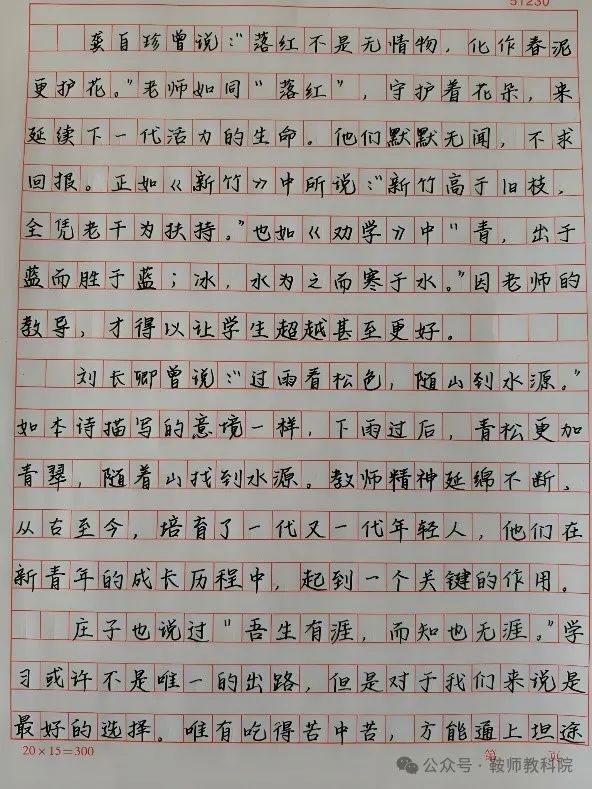 51230
龚自珍曾说:“落红不是无情物，化作春泥
更护花。”老师如同“落红”，守护着花朵，来
延续下一代活力的生命。他们默默无闻，不求
回报。正如《新竹》中所说:“新竹高于旧枝，
全凭老干为扶持。”也如《劝学》中“青，出于
蓝而胜于蓝；冰，水为之而寒于水。”因老师的
教导，才得以让学生超越甚至更好。
刘长卿曾说:“过雨看松色，随山到水源。”
如本诗描写的意境一样，下雨过后，青松更加
青翠，随着山找到水源。教师精神延绵不断，
从古至今，培育了一代又一代年轻人，他们在
新青年的成长历程中，起到一个关键的作用。
庄子也说过“吾生有涯，而知也无涯。”学
习或许不是唯一的出路，但是对于我们来说是
最好的选择。唯有吃得苦中苦，方能通上坦途
20×15=300
第 页
公众号·鞍师教科院